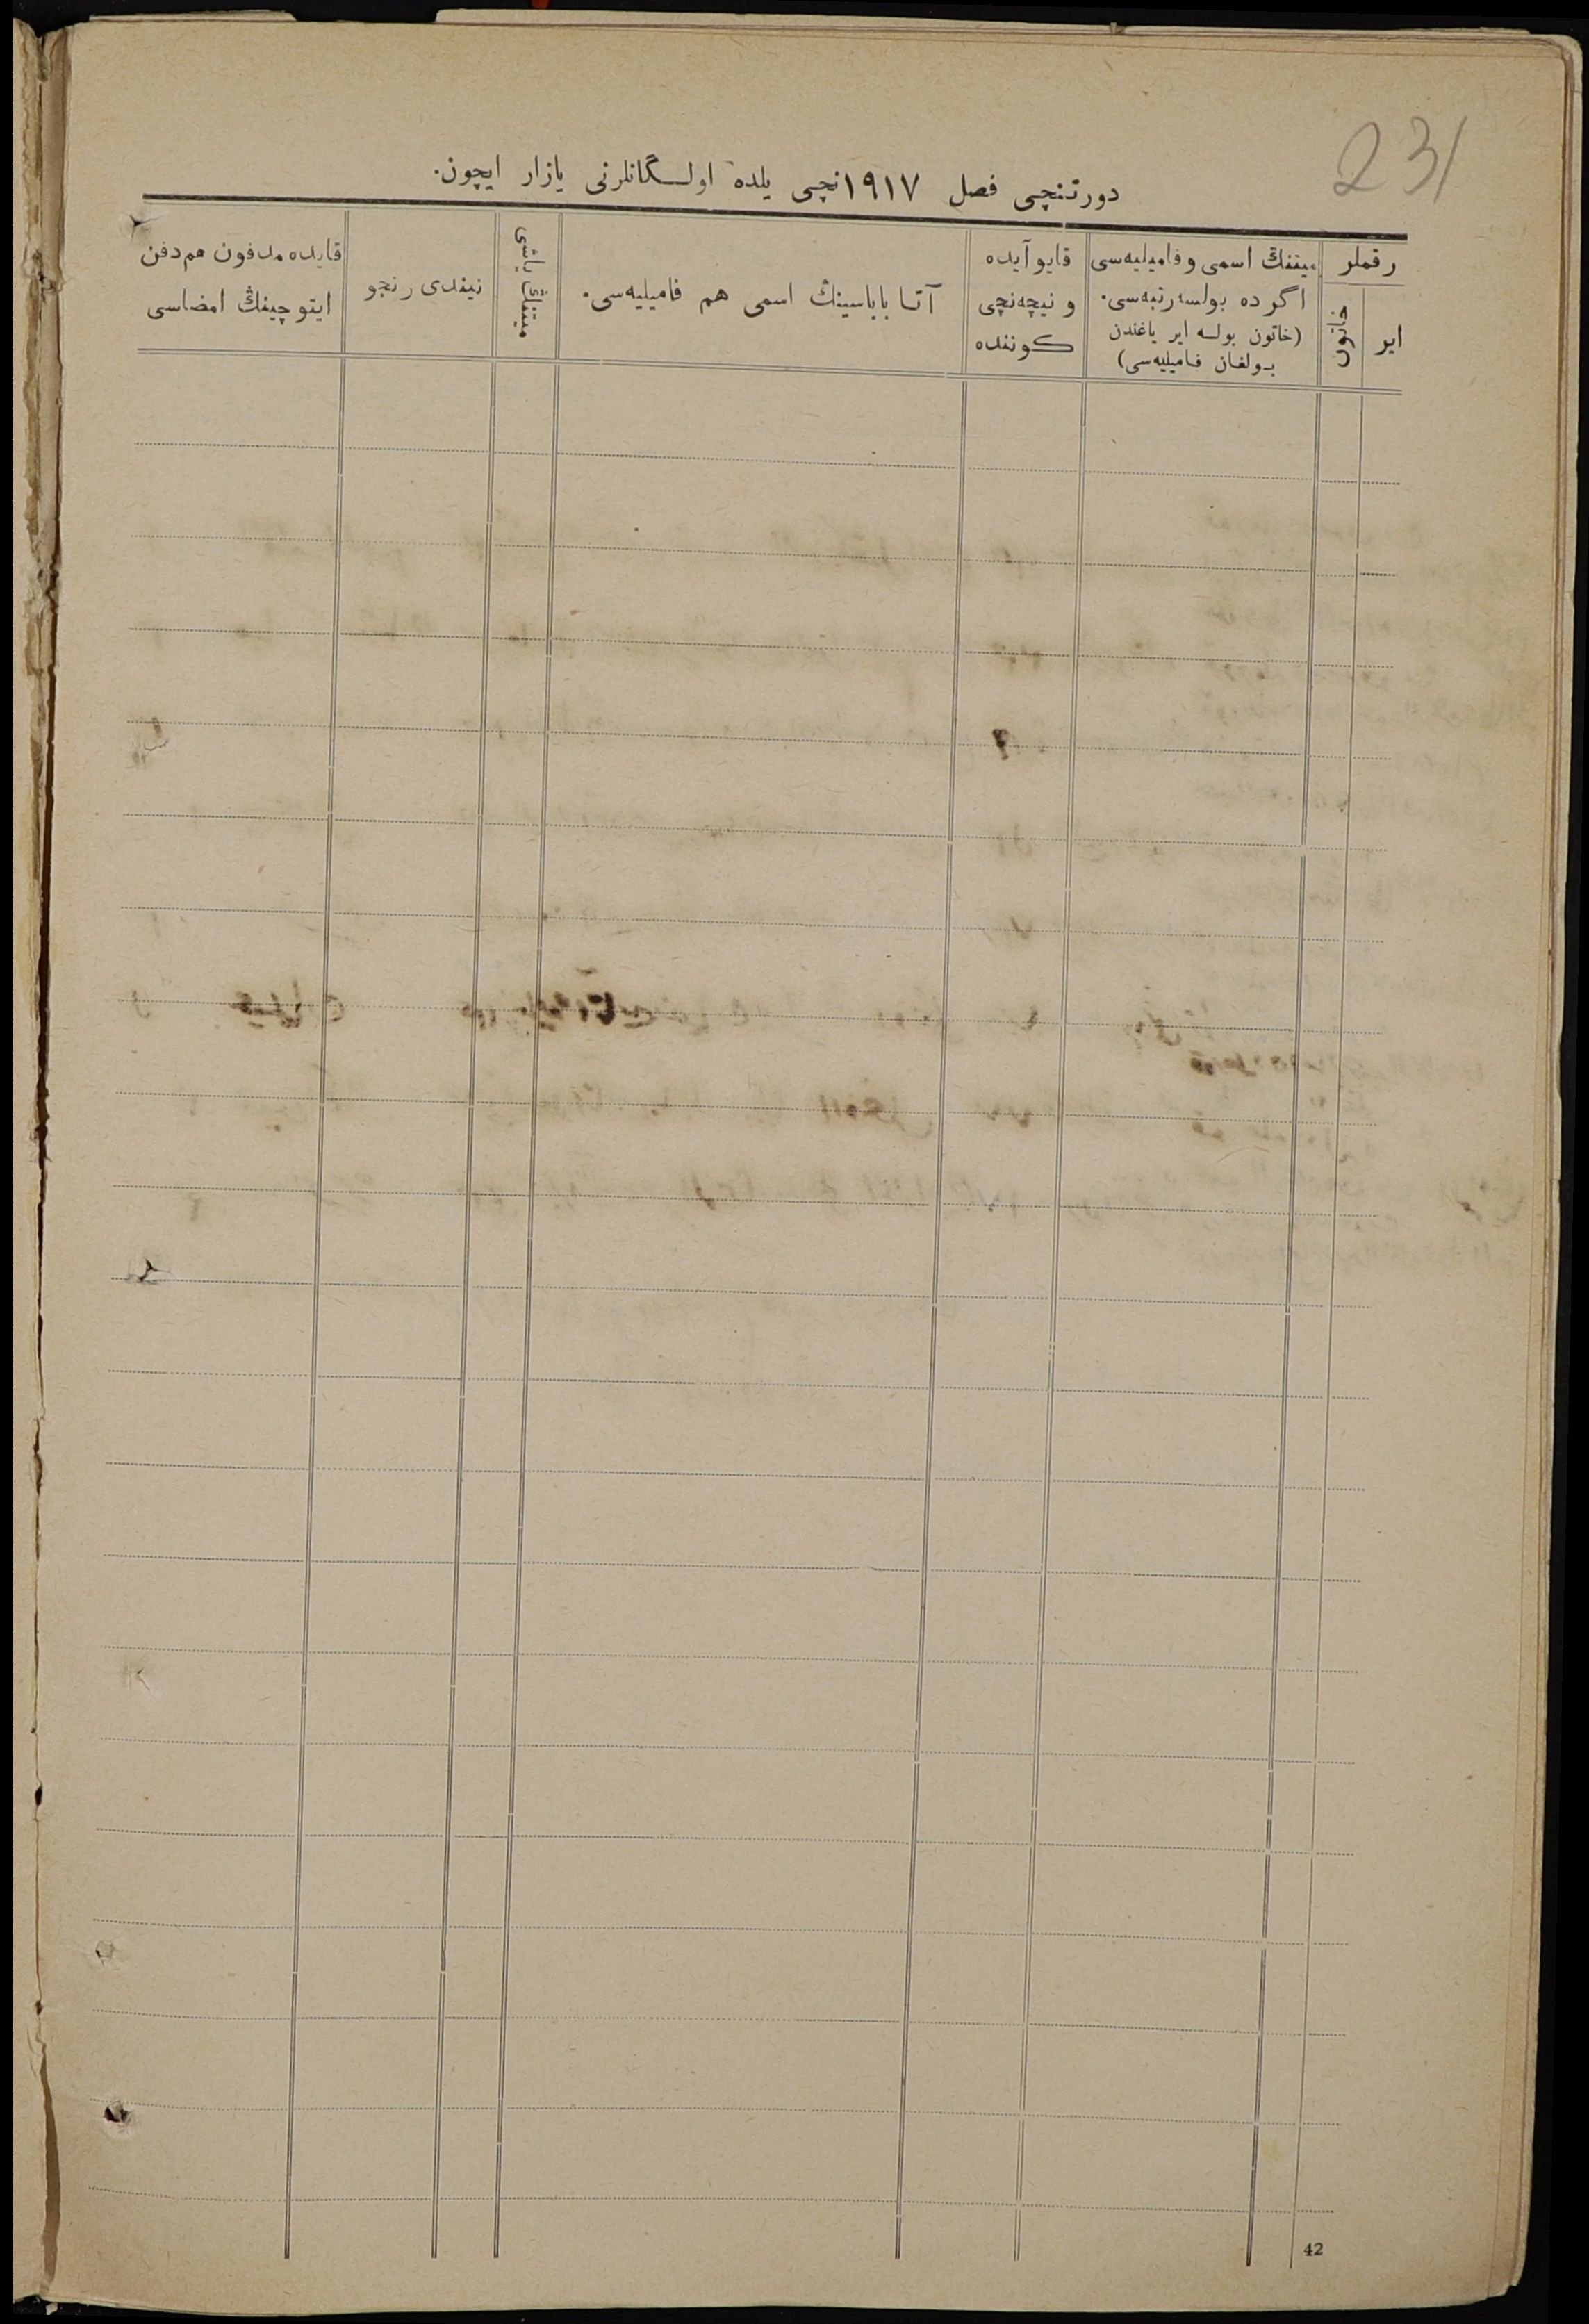 231
دورتنچی فصل ۱۹۱۷نچی یلده اولـگانلرنی یازار ایچون.
رقملر
ایر
خاتون
میتنڭ اسمی و فامیلیه‌سی
اگر ده بولسه رتبه‌سی.
(خاتون بولسه ایر یاغندن
بولغان فامیلیه‌سی)
قایو آیده
و نیچه‌نچی
کوننده
آتا باباسینڭ اسمی هم فامیلیه‌سی.
میتنڭ یاشی
نیندی رنجو
قایده مدفون هم دفن
ایتوچینڭ امضاسی
42